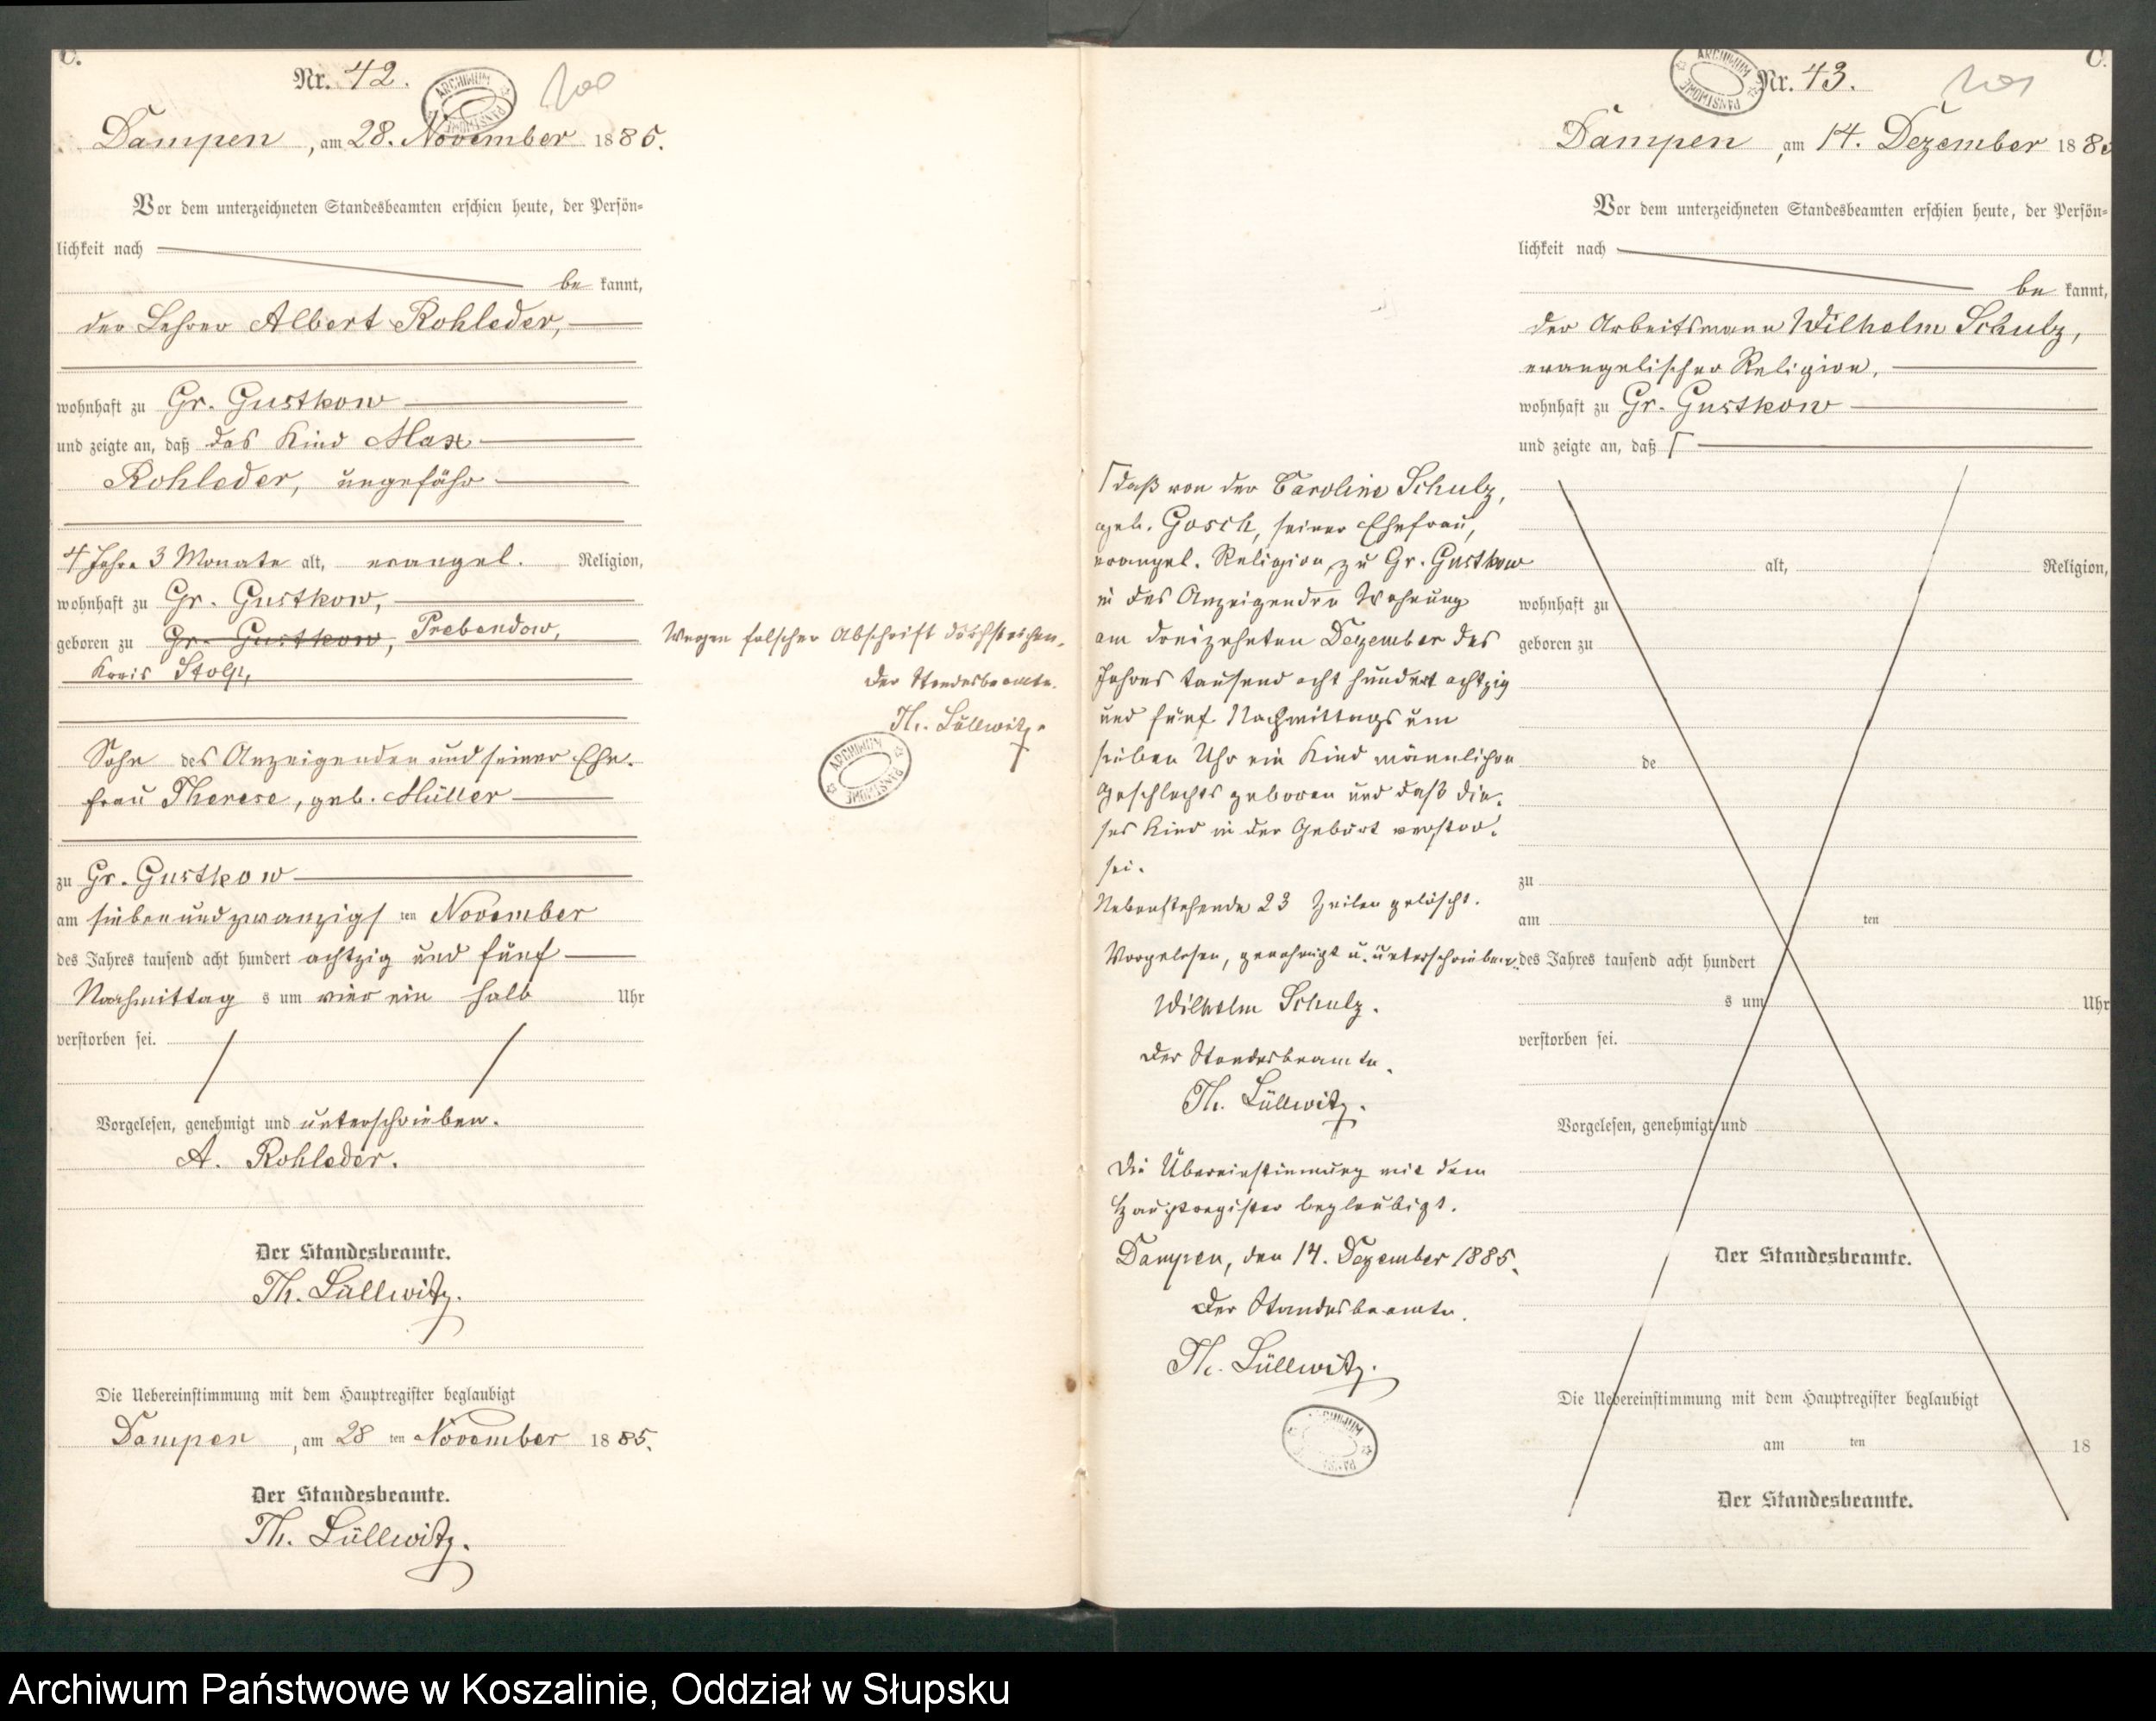 C.
Nr. 42.
ARCHIWUM PAŃSTWOWE
200
Dampen, am 28. November 1885.
Vor dem unterzeichneten Standesbeamten erschien heute, der Persön=
lichkeit nach
be kannt,
der Lehrer Albert Rohleder,
wohnhaft zu Gr. Gustkow
und zeigte an, daß das Kind Max
Rohleder, ungefähr
4 Jahre 3 Monate alt, evangel. Religion,
wohnhaft zu Gr. Gustkow,
geboren zu Gr. Gustkow, Prebendow,
Kreis Stolp,
Sohn des Anzeigenden und seiner Ehe-
frau Therese, geb. Müller
zu Gr. Gustkow
am siebenundzwanzigs ten November
des Jahres tausend acht hundert achtzig und fünf
Nachmittag s um vier ein halb Uhr
verstorben sei.
Vorgelesen, genehmigt und unterschrieben.
A. Rohleder.
Der Standesbeamte.
Th. Lüllwitz.
Die Uebereinstimmung mit dem Hauptregister beglaubigt
Dampen, am 28 ten November 1885.
Der Standesbeamte.
Th. Lüllwitz.
Wegen falscher Abschrift durchstrichen.
Der Standesbeamte.
Th. Lüllwitz.
ARCHIWUM PAŃSTWOWE
C.
ARCHIWUM PAŃSTWOWE
Nr. 43.
201
Dampen, am 14. Dezember 188
Vor dem unterzeichneten Standesbeamten erschien heute, der Persön=
lichkeit nach
be kannt,
der Arbeitsmann Wilhelm Schulz,
evangelischer Religion,
wohnhaft zu Gr. Gustkow
und zeigte an, daß Γ
Γ daß von der Caroline Schulz,
geb. Gosch, seiner Ehefrau,
evangel. Religion, zu Gr. Gustkow
in des Anzeigenden Wohnung
am dreizehnten Dezember des
Jahres tausend acht hundert achtzig
und fünf Nachmittags um
sieben Uhr ein Kind männlichen
Geschlechts geboren und daß die-
ses Kind in der Geburt verstor.
sei.
Nebenstehende 23 Zeilen gelöscht.
Vorgelesen, genehmigt u. unterschrieben.
Wilhelm Schulz.
Der Standesbeamte.
Th. Lüllwitz.
Die Übereinstimmung mit dem
Hauptregister beglaubigt.
Dampen, den 14. Dezember 1885.
Der Standesbeamte.
Th. Lüllwitz.
ARCHIWUM PAŃSTWOWE
alt, Religion,
wohnhaft zu
geboren zu
de
zu
am ten
des Jahres tausend acht hundert
s um Uhr
verstorben sei.
Vorgelesen, genehmigt und
Der Standesbeamte.
Die Uebereinstimmung mit dem Hauptregister beglaubigt
am ten 18
Der Standesbeamte.
Archiwum Państwowe w Koszalinie, Oddział w Słupsku